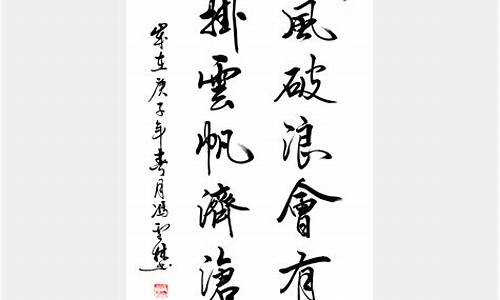 風破浪會有
掛雲帆濟滄
歲在庚子年春月馮